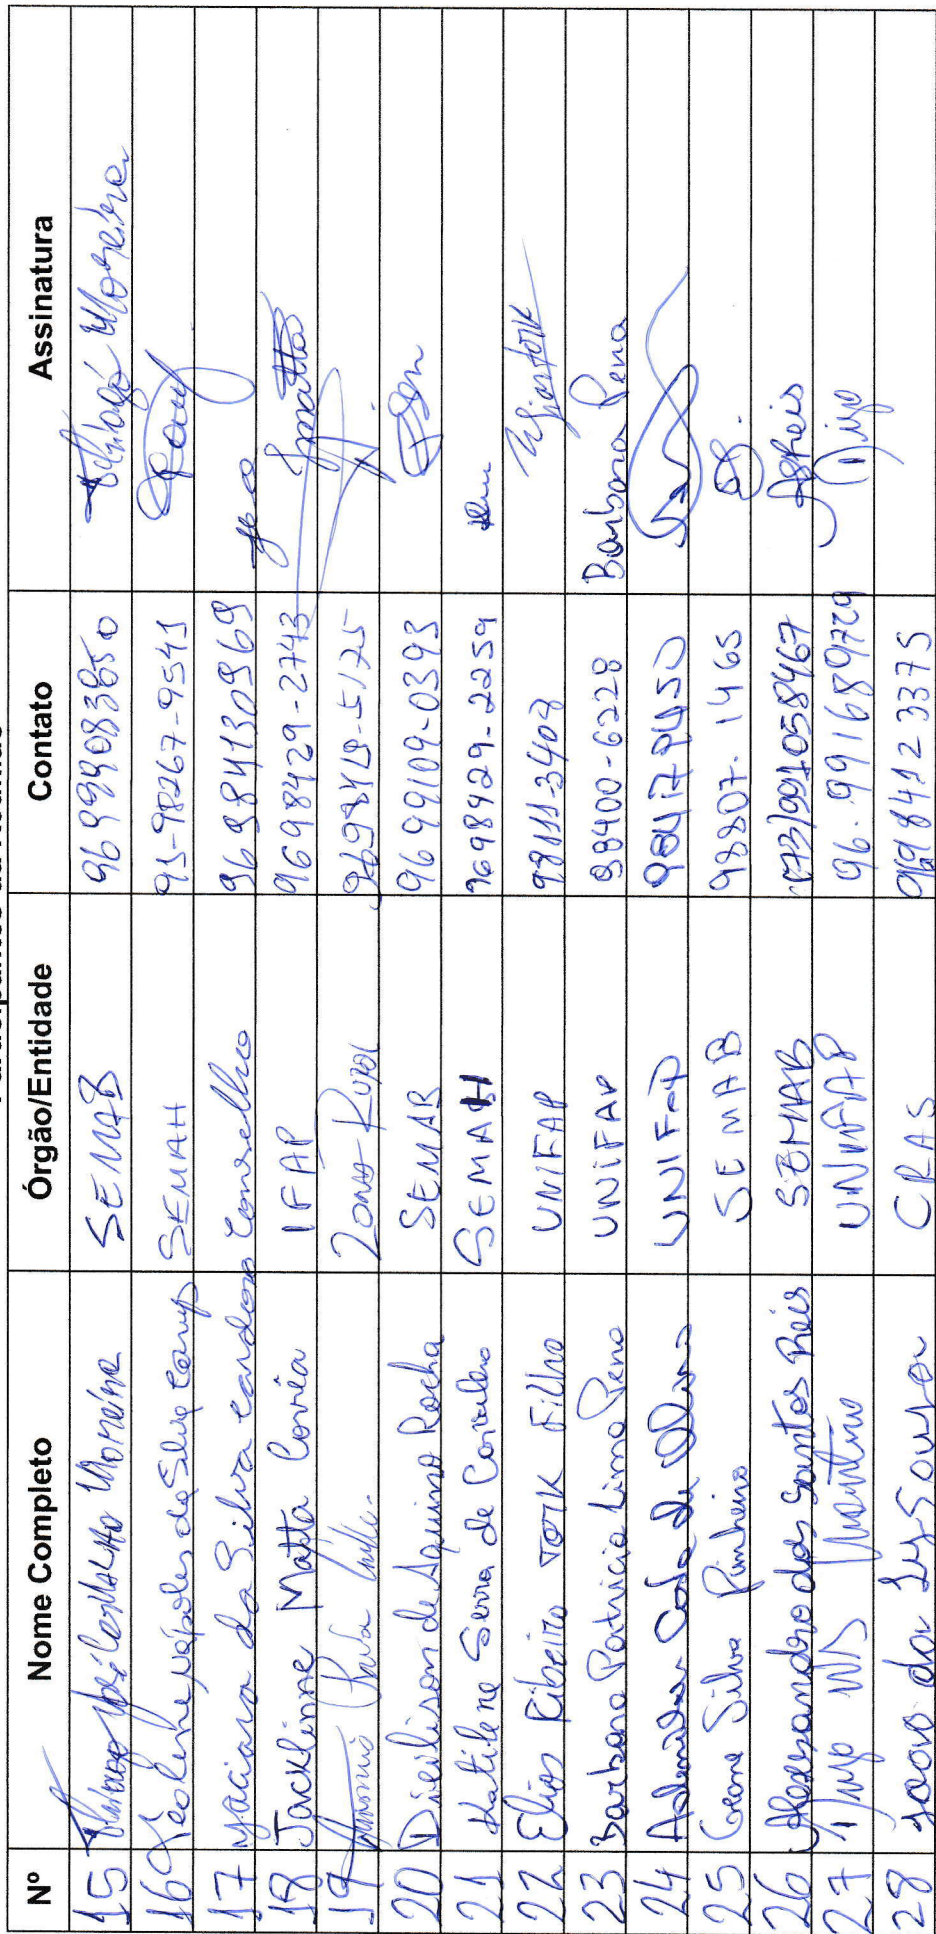 Participantes da reunião
Nº Nome Completo Órgão/Entidade Contato Assinatura
15 Thiago José Carvalho Moreira SEMAB 96999083850 Thiago Moreira
16 da Silva SEMAH 95-98267-9541
17 Jaciara da Silva Cardoso Conselho 96 984130969
18 Jackline Matta Corrêa IFAP 96 98429-2743 Jmatta
19 Antonio Zona Rural 96 98419-5175
20 Dieilison de Aquino Rocha SEMAB 96 99109-0393
21 Katilene Serra de Carvalho SEMAH 9698429-2259
22 Elias Ribeiro TORK Filho UNIFAP 98111-3408 Eliastork
23 Barbara Patricia Lima Pena UNIFAP 98400-6228 Barbara Pena
24 Costa de Oliveira UNIFAP 98417 9450
25 Geane Silva Pinheiro SEMAB 98807-1465
26 Alessandro dos Santos Reis SEMAB (73)991058467 ASReis
27 Martins UNIFAP 96.991689729
28 Joana da Luz Souza CRAS 96984123375